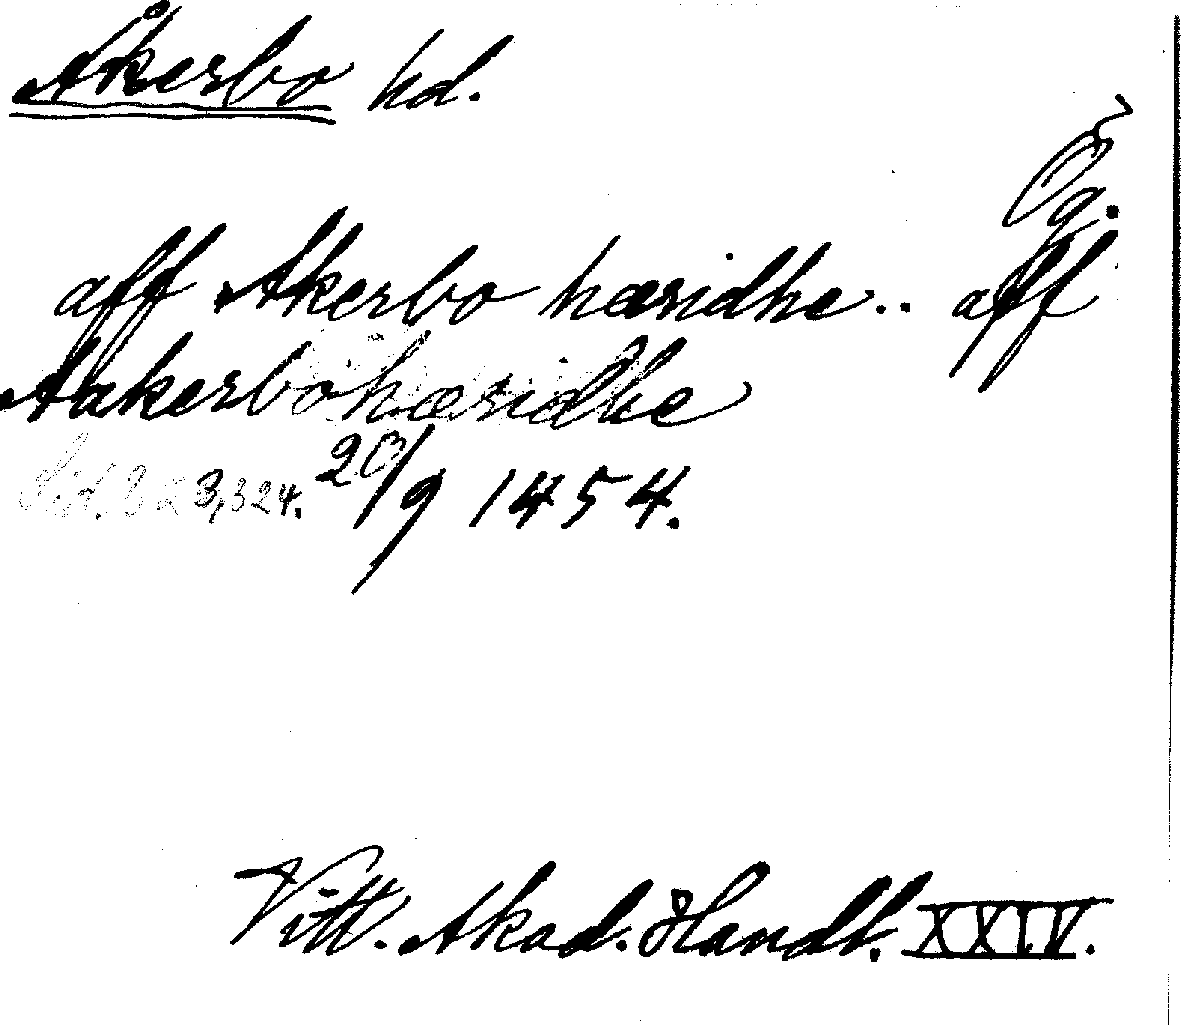 Åkerbo hd.
Ög.
aff Akerbo hæridhe.. aff
Aakerböhæridhe
Sid. 323, 324. 20/9 1454.
Vitt. Akad. Handl. XXIV.